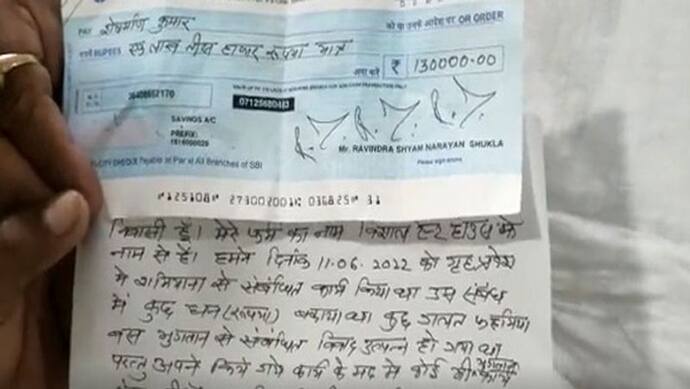 PAY शेषमणि कुमार को या उनके आदेश पर OR ORDER
रुपये RUPEES एक लाख तीस हजार रूपया मात्र
अदा करें ₹ 130000.00
07125680483
SAVINGS A/C
PREFIX:
Mr. RAVINDRA SHYAM NARAYAN SHUKLA
Please sign above
Payable at Par at All Branches of SBI
⑈125108⑈ 273002001⑆ 036825⑈ 31
निवासी हूँ। मेरे फर्म का नाम विशाल टेंट हाउस के
नाम से है। हमने दिनांक 11.06.2022 को गृह प्रवेश
में शामियाना से संबंधित कार्य किया था उस संबंध
में कुछ धन (रूपया) बकाया था कुछ गलत फहमियां
बस भुगतान से संबंधित विवाद उत्पन्न हो गया था
परन्तु अपने किये गये कार्य के मद में कोई भी भुगतान